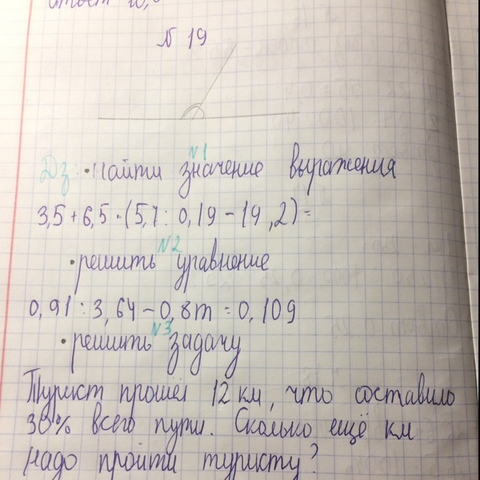 ответ
№ 19
Дз: • Найти значение выражения
№1
3,5+6,5·(5,7:0,19-19,2)=
№2
• решить уравнение
0,91:3,64-0,8m=0,109
№3
• решить задачу
Турист прошёл 12 км, что составило
30% всего пути. Сколько ещё км
надо пройти туристу?